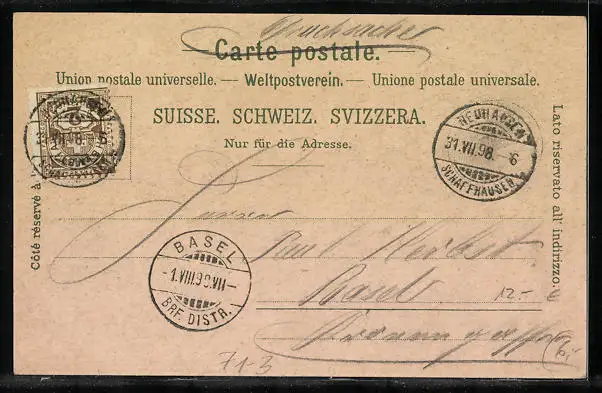 Drucksache
Carte postale.
Union postale universelle. — Weltpostverein. — Unione postale universale.
SUISSE. SCHWEIZ. SVIZZERA.
Nur für die Adresse.
Côté réservé à
Lato riservato all' indirizzo.
NEUHAUSEN
31.VII.98. 6
SCHAFFHAUSEN
31.VII.98. 6
BASEL
-1.VIII.98.VII-
BRF. DISTR.
Paul
Basel
12.- €
71-3